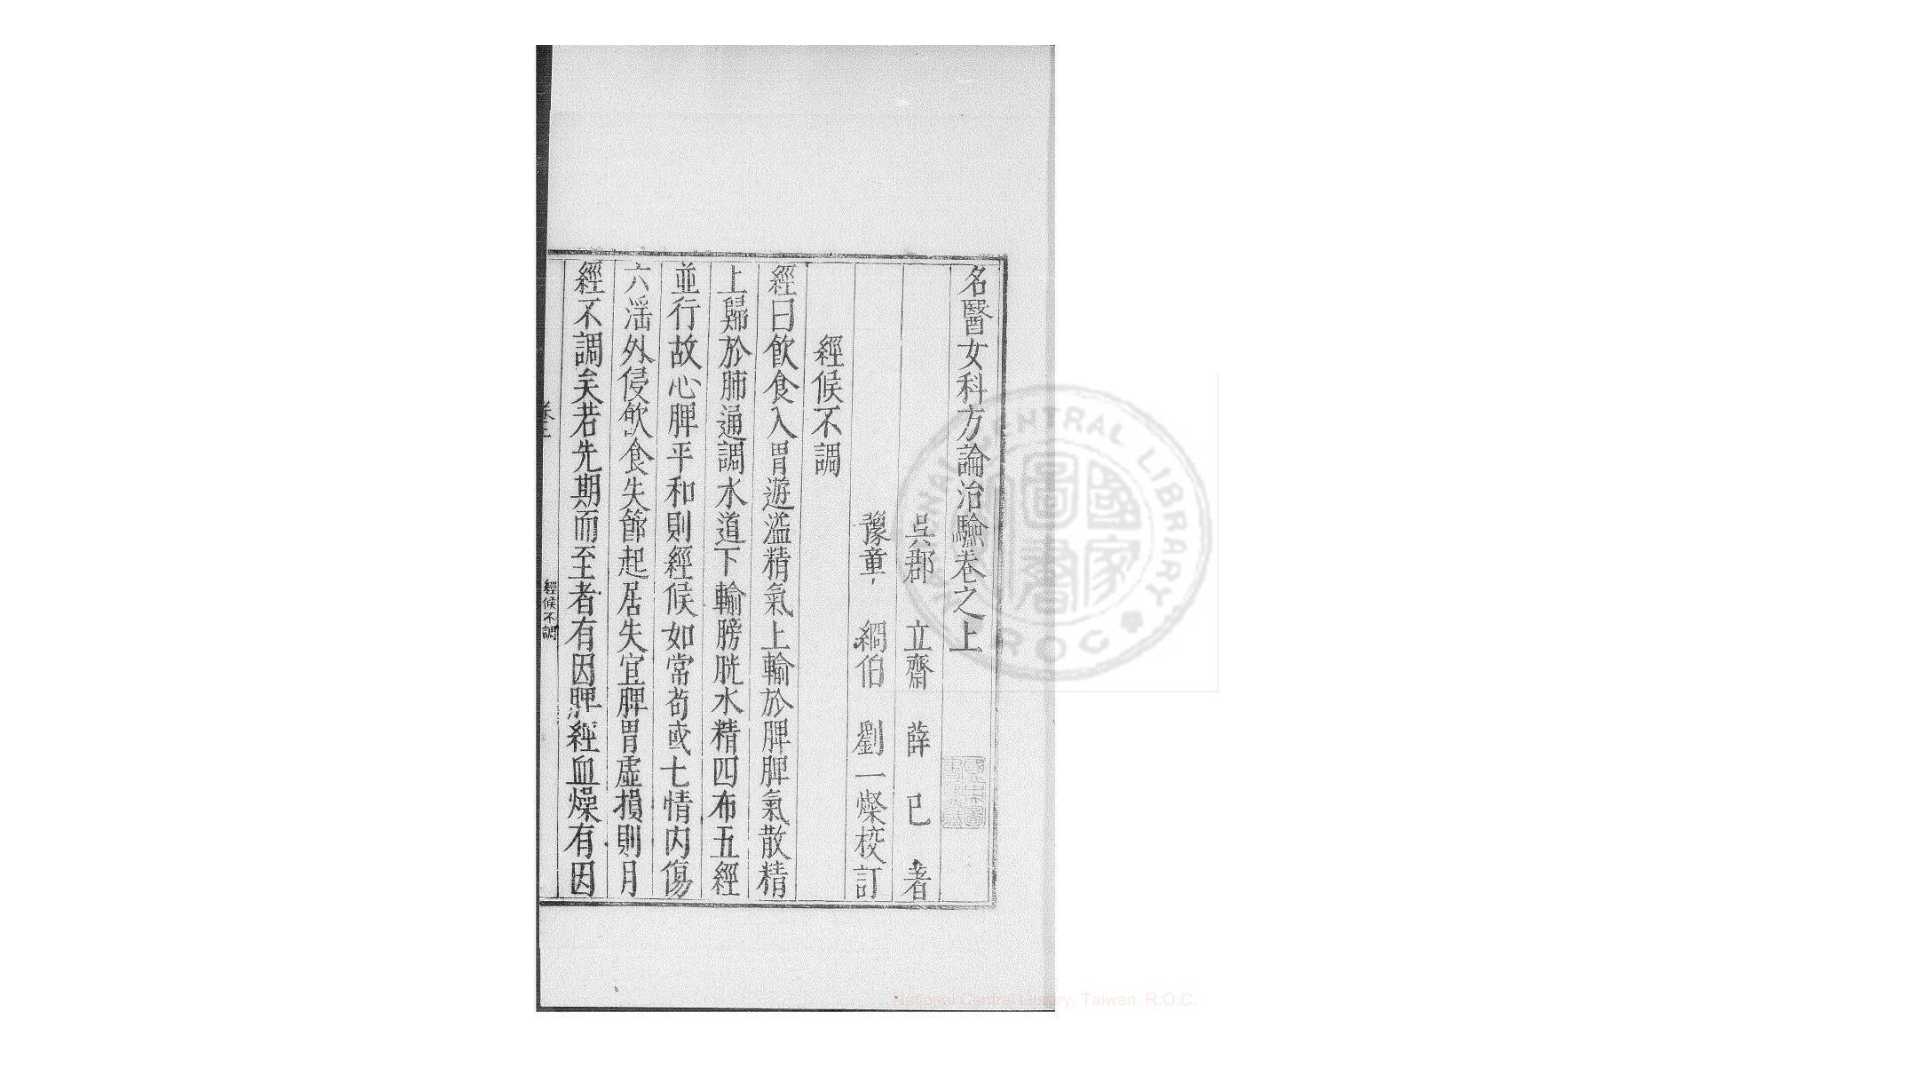 名醫女科方論治驗卷之上
吳郡 立齋 薛 已 著
豫章 絅伯 劉一燦校訂
經候不調
經曰飲食入胃遊溢精氣上輸於脾脾氣散精
上歸於肺通調水道下輸膀胱水精四布五經
並行故心脾平和則經候如常苟或七情內傷
六淫外侵飲食失節起居失宜脾胃虛損則月
經不調矣若先期而至者有因脾經血燥有因
經候不調
NATIONAL CENTRAL LIBRARY R.O.C
國家圖書
National Central Library, Taiwan, R.O.C.